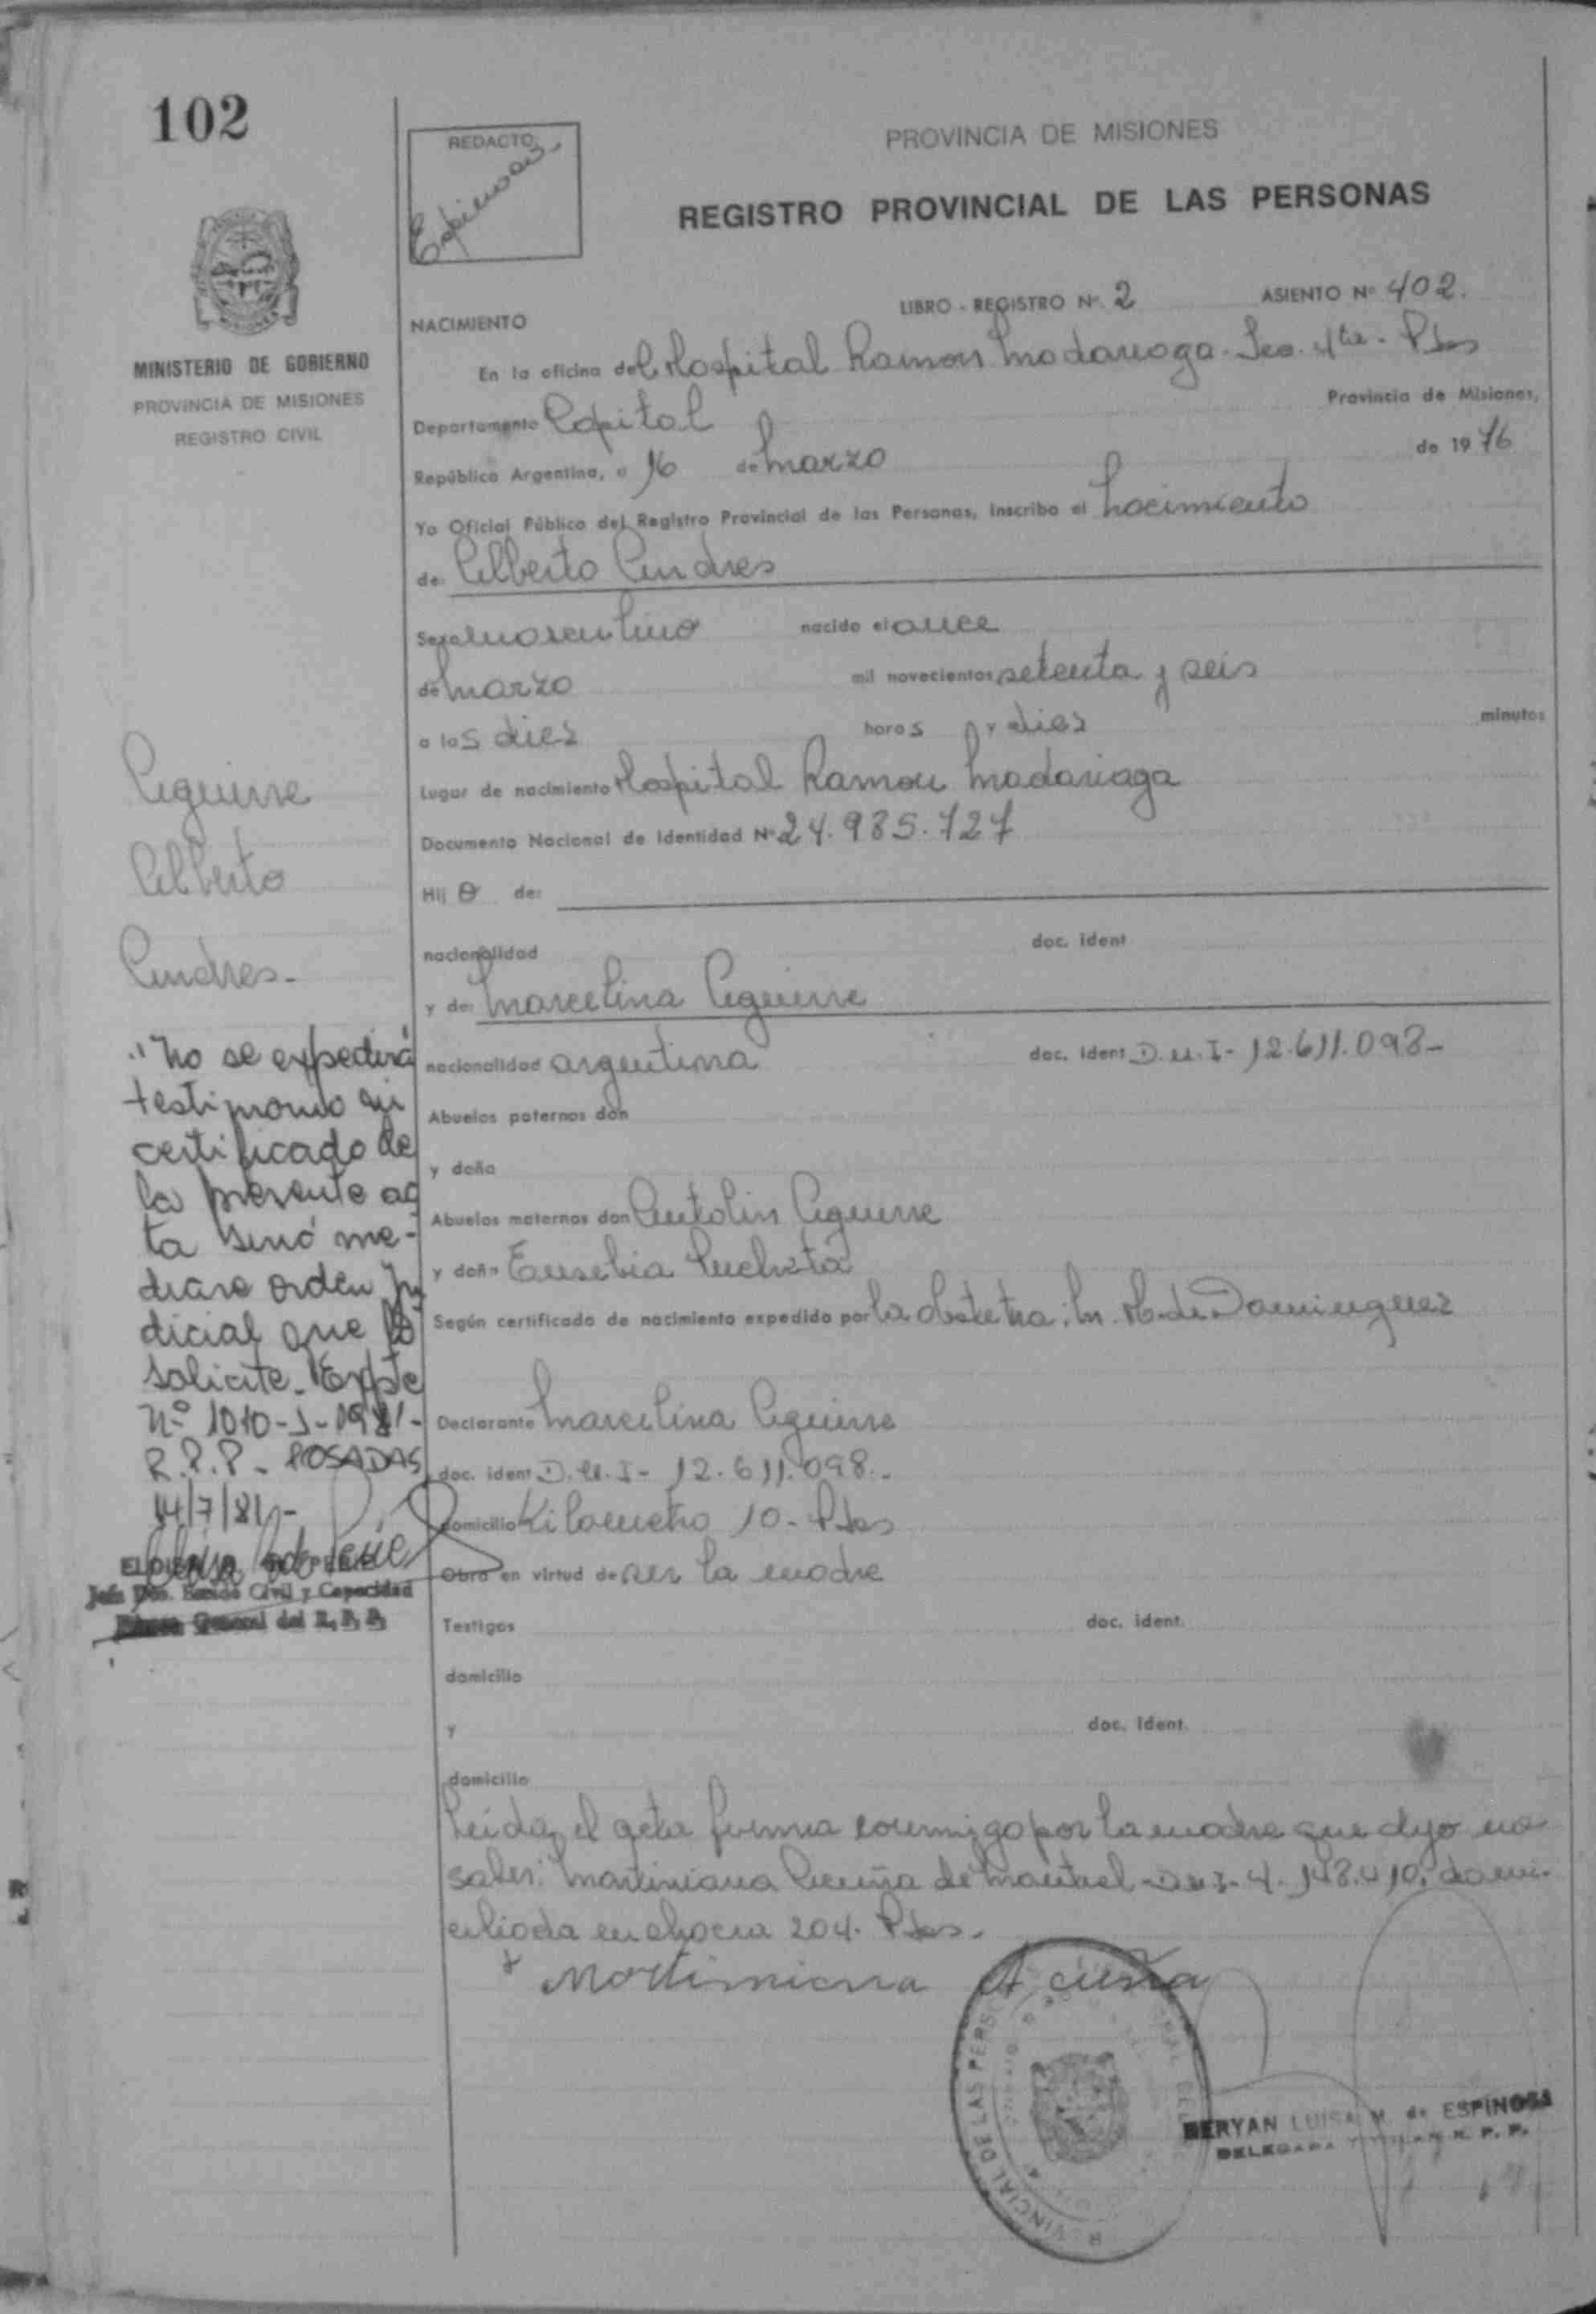 102
REDACTO:
Espinosa
PROVINCIA DE MISIONES
REGISTRO PROVINCIAL DE LAS PERSONAS
MINISTERIO DE GOBIERNO
PROVINCIA DE MISIONES
REGISTRO CIVIL
LIBRO - REGISTRO Nº. 2 ASIENTO Nº 402.
NACIMIENTO
En la oficina del Hospital Ramon Madariaga - Pdas
Departamento Capital Provincia de Misiones,
República Argentina, a 16 de Marzo de 1976
Yo Oficial Público del Registro Provincial de las Personas, inscribo el Nacimiento
de: Alberto Andres
Sexo masculino nacido el once
de Marzo mil novecientos setenta y seis
a las diez horas y diez minutos
Lugar de nacimiento Hospital Ramon Madariaga
Documento Nacional de Identidad Nº 24.985.727
Hijo de:
nacionalidad doc. ident
y de: Marcelina Aguirre
nacionalidad argentina doc. ident D.N.I- 12.611.098-
Abuelos paternos don
y doña
Abuelos maternos don Antolin Aguirre
y doña Eusebia
Según certificado de nacimiento expedido por la obstetra: M. H. de Dominguez
Declarante Marcelina Aguirre
doc. ident D.N.I- 12.611.098.-
domicilio Kilometro 10- Pdas
Obra en virtud de ser la madre
Testigos doc. ident.
domicilio
y doc. ident.
domicilio
Leida el acta firma conmigo por la madre que dijo no
saber: Martiniana Acuña de D.N.I- 4. domi-
ciliada en chacra 204. Pdas.
Martiniana Acuña
Aguirre
Alberto
Andres-
"No se expedirá
testimonio ni
certificado de
la presente ac
ta sinó me-
diare orden ju
dicial que lo
solicite. Expte
Nº 1010-J-1981-
R.P.P- POSADAS
14/7/81-
Jefe Dto. Estado Civil y Capacidad
General del R. P. P.
VINCIAL DE LAS PERS
BERYAN LUISA M. de ESPINOSA
DELEGADA TITULAR R. P. P.